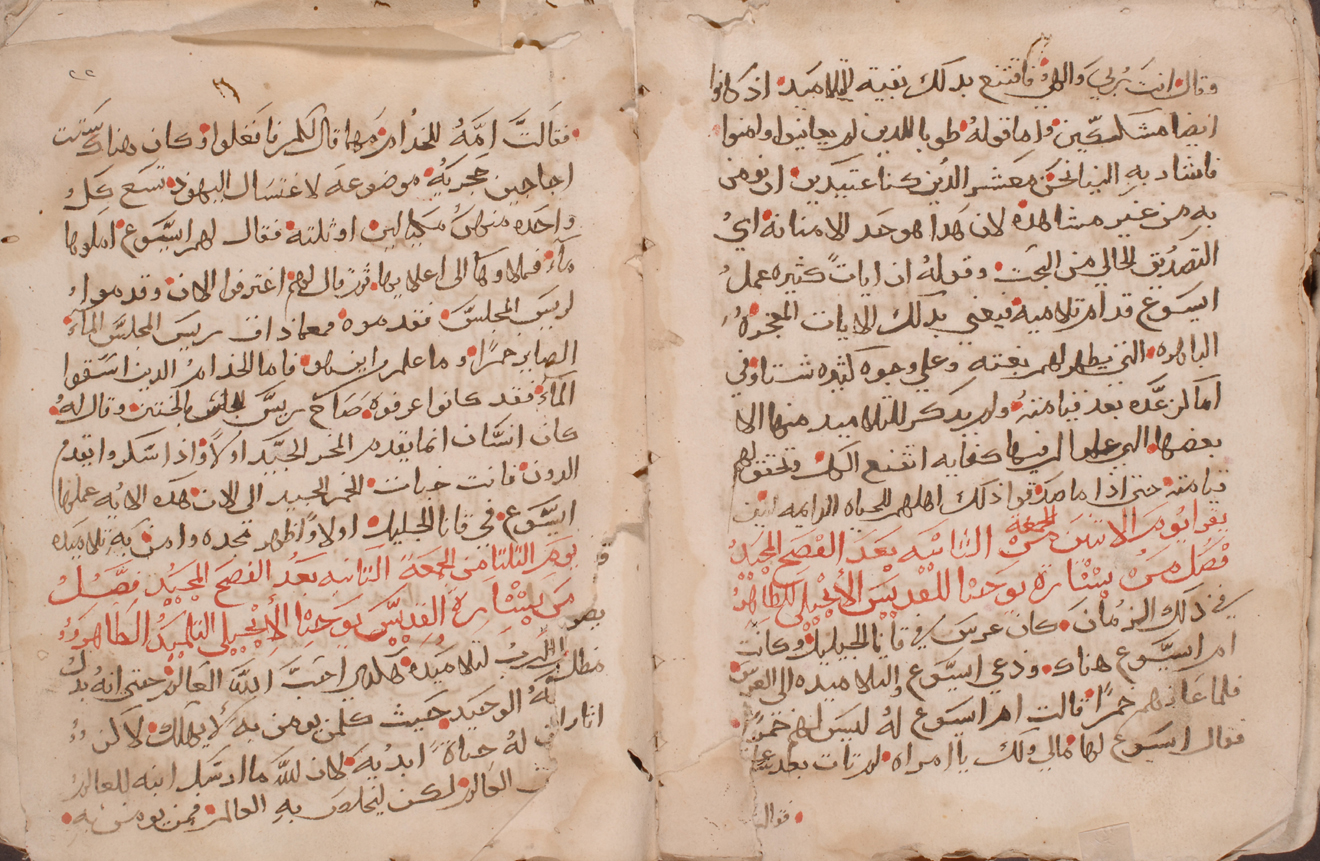 وقال انت ربي والهي فاقتنع بدلك بقية التلاميد اذ كانوا
ايضا مشككين واما قوله طوبا للدين لم يعاينوا وامنوا
فاشار به الينا نحن معشر الدين كنا عتيدين ان نومن
به من غير مشاهده لان هدا هو حد الامانه اي
التصديق الخالي من البحت وقوله ان ايات كثيره عمل
ايسوع قدام تلاميده فيعني بدلك الايات المعجزه
الباهره التي يظهر لهم بغته وعلي وجوه كثيره شتا وفي
اماكن عده بعد قيامته ولم يدكر للتلاميد منها الا
بعضها التي علم ان فيها كفايه لتقنع الكل وتحقق لهم
قيامته حتي اذا ما صدقوا ذلك اهلهم للحياه الدايمه
يقرا يوم الاتنين من الجمعة التانيه بعد الفصح المجيد
فصل من بشارة يوحنا للقديس الانجيلي الطاهر
في ذلك الزمان كان عرس في قانا الجليل وكانت
ام ايسوع هناك ودعي ايسوع والتلاميده الي العرس
فلما عازهم خمرًا قالت ام ايسوع له ليس لهم خمرًا
فقال ايسوع لها مالي ولك يا امراه لم تات بعد
فقالت
٢٢
فقالت امه للخدام مهما قال لكم فافعلوا وكان هناك ست
اجاجين حجريه موضوعه لاغتسال اليهود تسع كل
واحده منهن مكيالين او ثلثه فقال لهم ايسوع املوها
مآء فملاوها الى اعلاها ثم قال لهم اغترفوا الان وقدموا
لريس المجلس فقدموه فمما ذاق ريس المجلس المآء
الصاير خمرًا وما علم من اين هو فاما الخدام الدين استقوا
المآء فقد كانوا عرفوه صاح ريس المجلس بالختن وقال له
كل انسان انما يقدم الخمر الجيد اولاً واذا سكروا يقدم
الدون فانت خبات الخمر الجيد الى الان هده الايه عملها
ايسوع في قانا الجليل اولاً واظهر مجده وامن به تلاميده
يوم التلتا من الجمعة التانيه بعد الفصح المجيد فصل
من بشارة القديس يوحنا الانجيلي التلميد الطاهر
الرب لتلاميده هكدى احب الله العالم حتي انه بدل
ابنه الوحيد حيث كلمن يومن به لا يهلك لاكن
له حياةً ابديه لان لله ما ارسل ابنه للعالم
العالم لكن ليخلص به العالم فمن يومن به